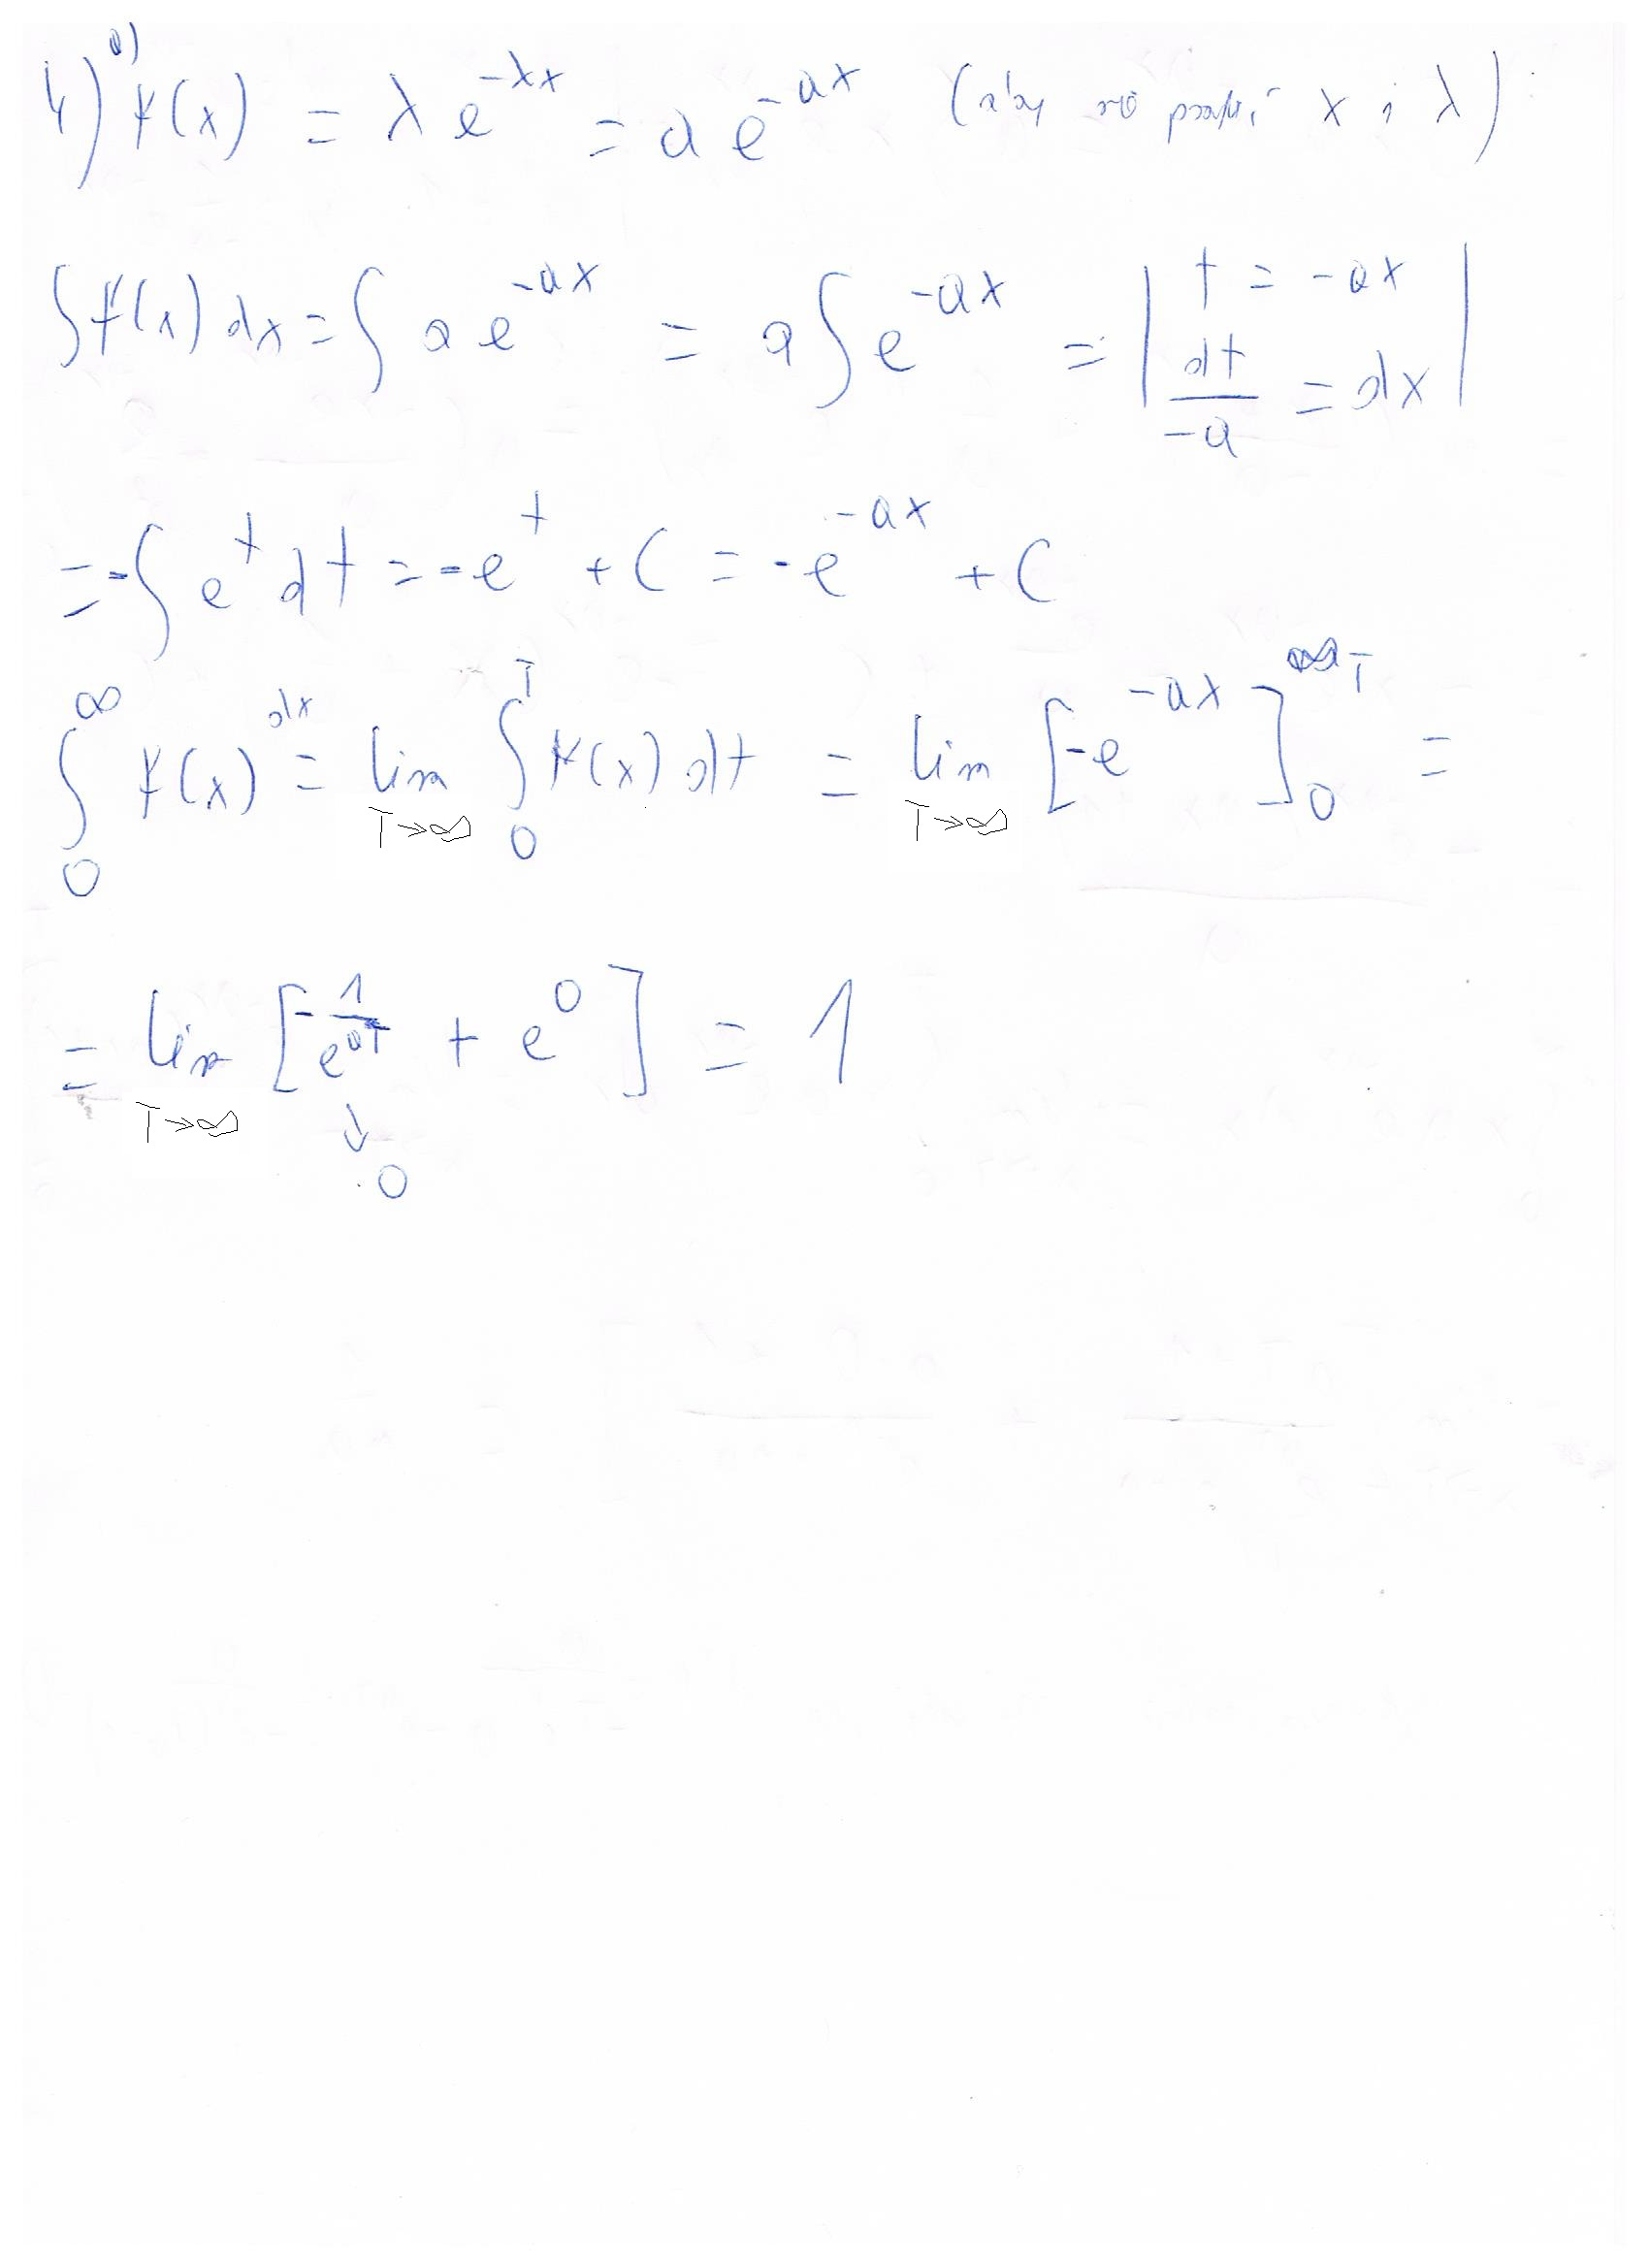 4) a) f(x) = λ e^{-λx} = a e^{-ax} ( x i λ)
∫ f(x) dx = ∫ a e^{-ax} = a ∫ e^{-ax} = | t = -ax dt/-a = dx |
= -∫ e^t dt = -e^t + C = -e^{-ax} + C
∫_0^∞ f(x) dx = lim_{T→∞} ∫_0^T f(x) dt = lim_{T→∞} [-e^{-ax}]_0^T =
= lim_{T→∞} [-1/e^{aT} + e^0] = 1
↓
0